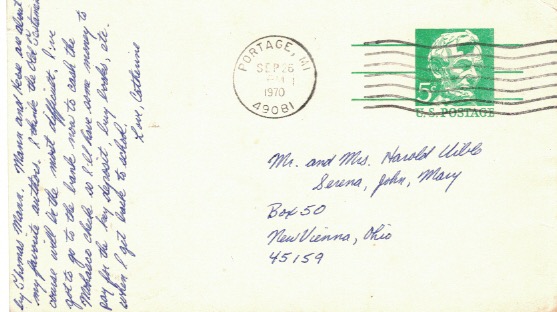 PORTAGE, MI
SEP 26
PM
1970
49081
5¢
U.S. POSTAGE
Mr. and Mrs. Harold Uible
Serena, John, Mary
Box 50
New Vienna, Ohio
45159
by Thomas Mann. Mann and Hesse are about
my favorite authors. I think the Old Testament
course will be the most difficult. I've
got to go to the bank now to cash the
check so I'll have some money to
pay for the key deposit, buy books, etc.
when I get back to school.
Love, Catherine